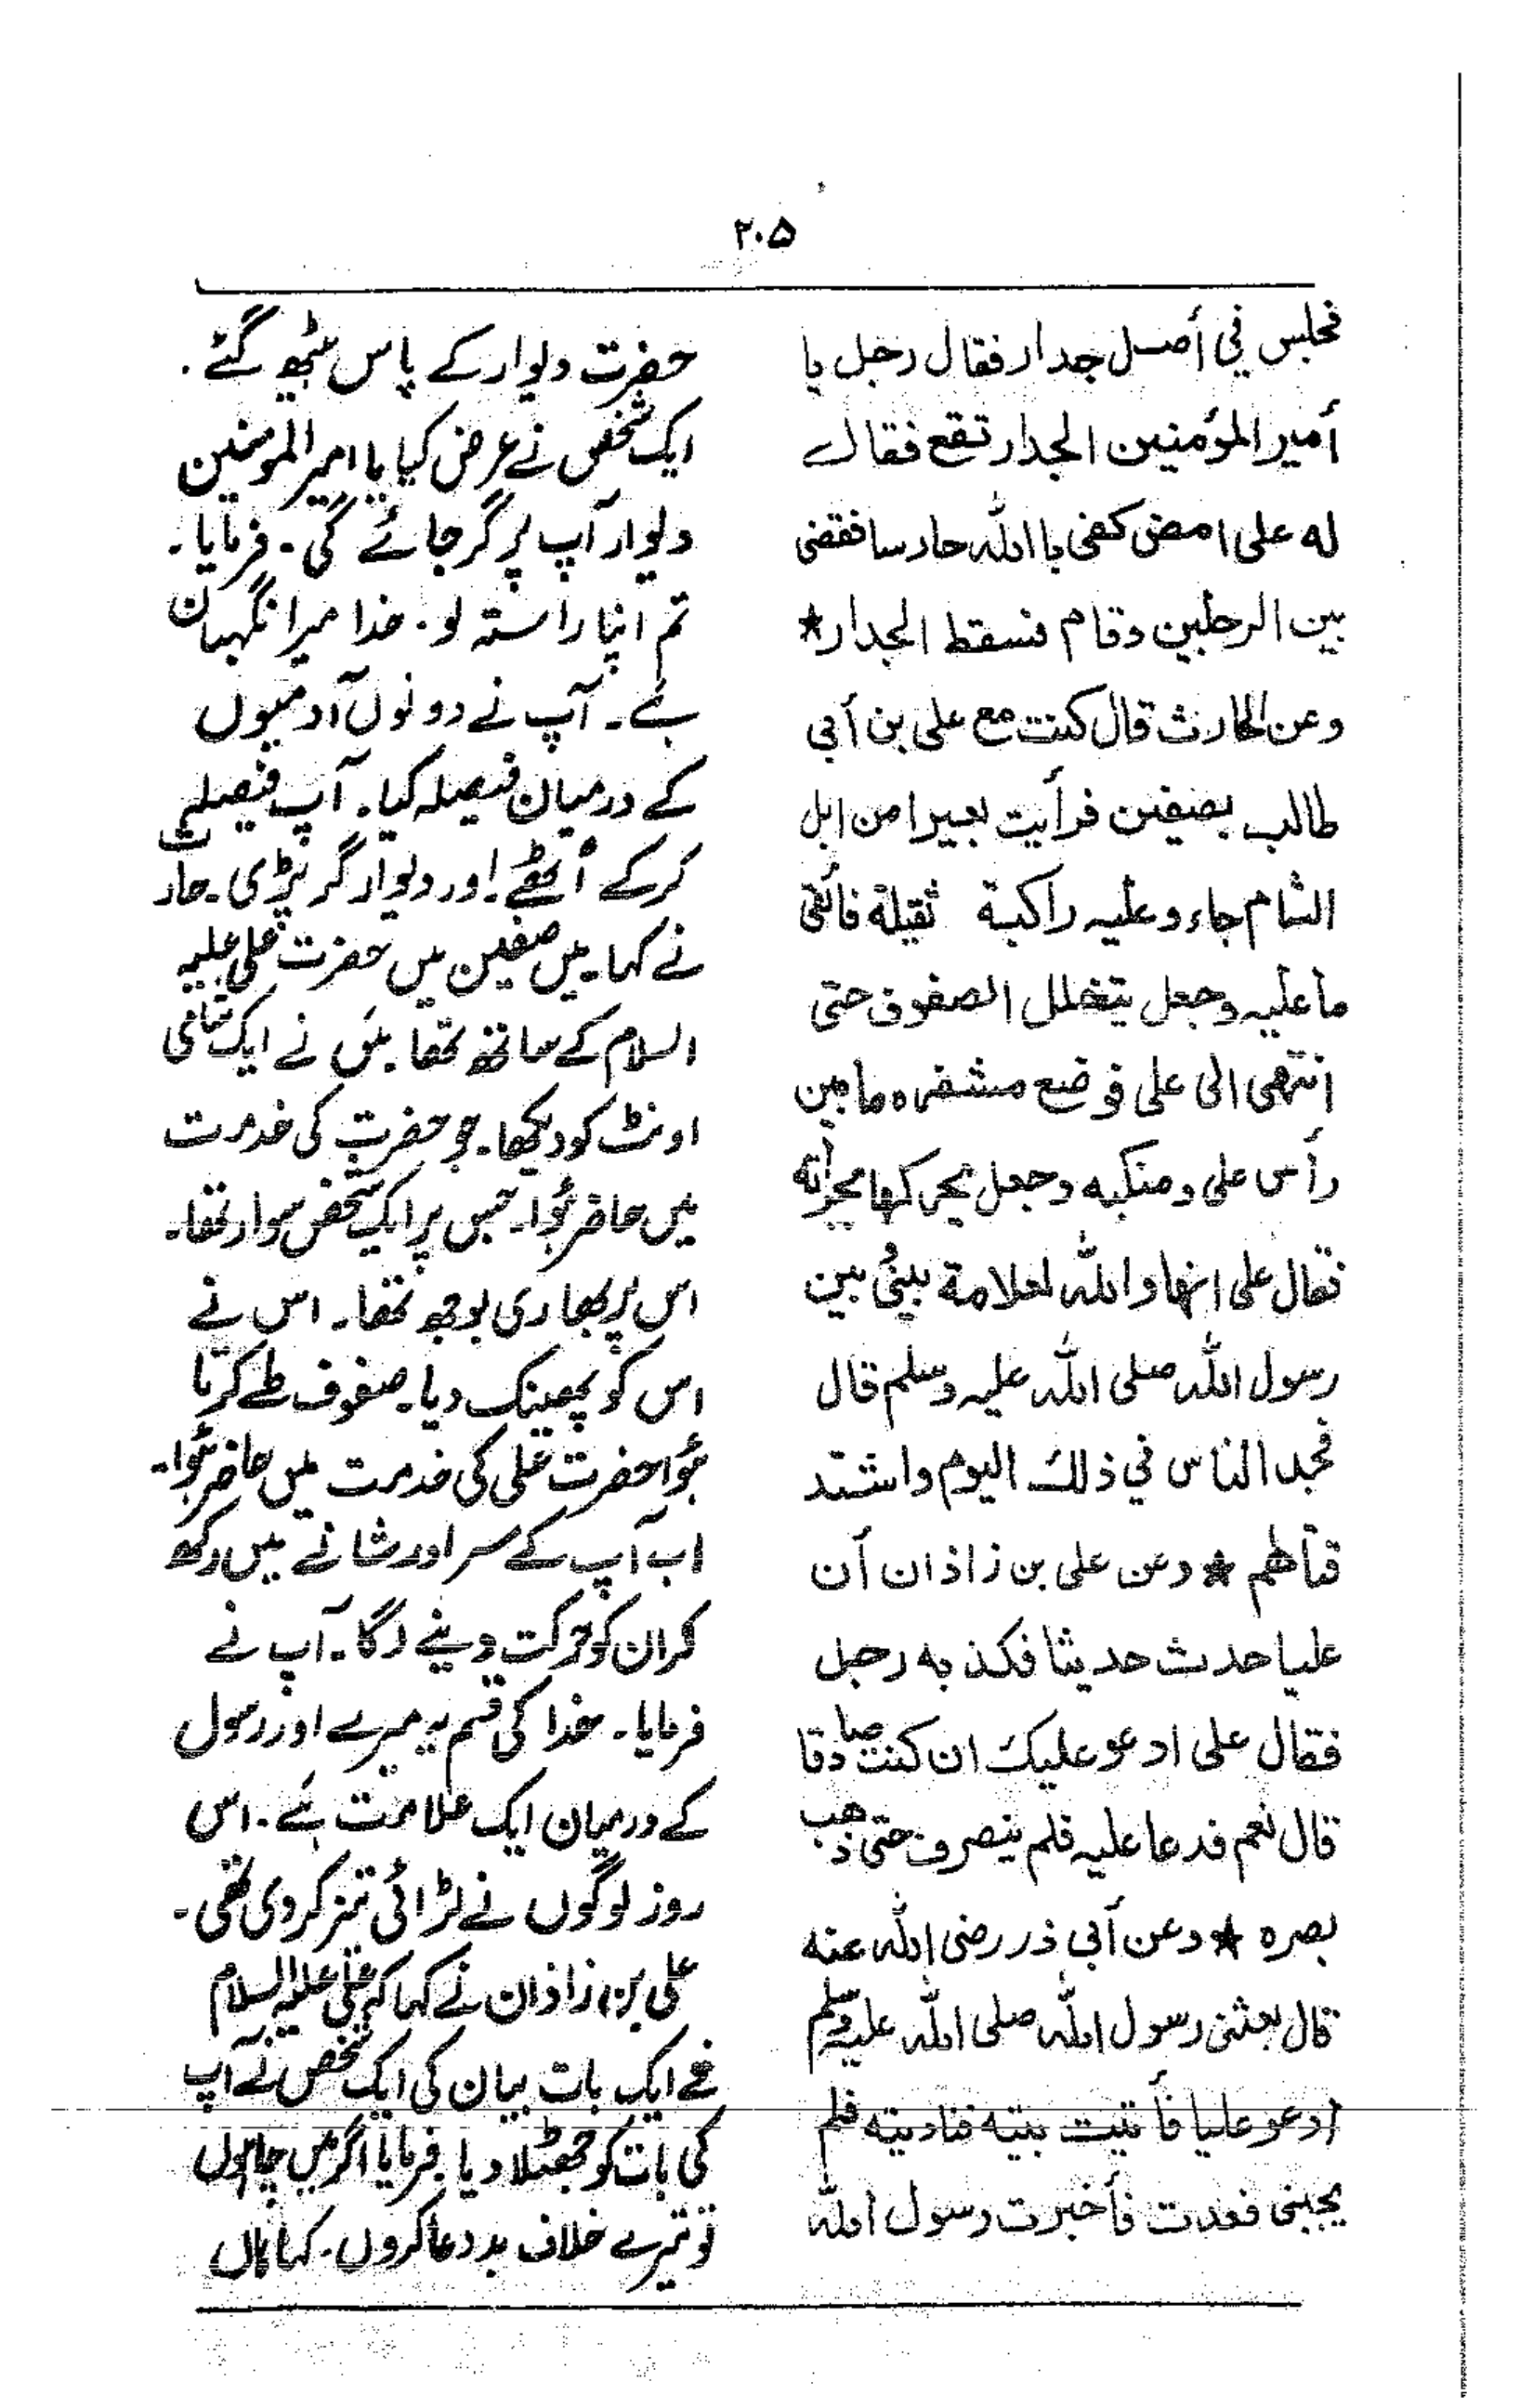 ۲۰۵
فجلس في أصل جدار فقال رجل يا
أمير المؤمنين الجدار تقع فقال
له على امض كفى با الله حارسا فقضى
بين الرجلين وقام فسقط الجدار★
وعن الحارث قال كنت مع على بن أبى
طالب بصفين فرأيت بعيرا من ابل
الشام جاء وعليه راكبة ثقيلة فألقى
ما عليه وجعل يتخلل الصفوف حتى
انتهى الى على فوضع مشفره ما بين
رأس على ومنكبه وجعل يحركها بجرانه
فقال على انها والله لعلامة بينى بين
رسول الله صلى الله عليه وسلم قال
فجد الناس في ذلك اليوم واشتد
قتالهم ★ وعن على بن زاذان أن
عليا حدث حديثا فكذبه رجل
فقال على ادعو عليك ان كنت صادقا
قال نعم فدعا عليه فلم ينصرف حتى ذهب
بصره ★ وعن أبى ذر رضى الله عنه
قال بعثنى رسول الله صلى الله عليه وسلم
ادعو عليا فأتيت بيته فناديته فلم
يجبنى فعدت فأخبرت رسول الله
حضرت دیوار کے پاس بیٹھ گئے۔
ایک شخص نے عرض کیا یا امیر المومنین
دیوار آپ پر گر جائے گی۔ فرمایا۔
تم اپنا راستہ لو۔ خدا میرا نگہبان
ہے۔ آپ نے دونوں آدمیوں
کے درمیان فیصلہ کیا۔ آپ فیصلہ
کرکے اُٹھے۔ اور دیوار گر پڑی۔ حارث
نے کہا۔ میں صفین میں حضرت علی علیہ
السلام کے ساتھ تھا۔ میں نے ایک شامی
اونٹ کو دیکھا۔ جو حضرت کی خدمت
میں حاضر ہوا۔ جس پر ایک شخص سوار تھا۔
اس پر بھاری بوجھ تھا۔ اس نے
اس کو پھینک دیا۔ صفوف طے کرتا
ہوا حضرت علی کی خدمت میں حاضر ہوا۔
اب آپ کے سر اور شانے میں رکھ
کر ان کو حرکت دینے لگا۔ آپ نے
فرمایا۔ خدا کی قسم یہ میرے اور رسول
کے درمیان ایک علامت ہے۔ اس
روز لوگوں نے لڑائی تیز کر دی تھی۔
علی بن زاذان نے کہا کہ علی علیہ السلام
نے ایک بات بیان کی ایک شخص نے آپ
کی بات کو جھٹلا دیا۔ فرمایا اگر میں چاہوں
تو تیرے خلاف بد دعا کروں۔ کہا ہاں